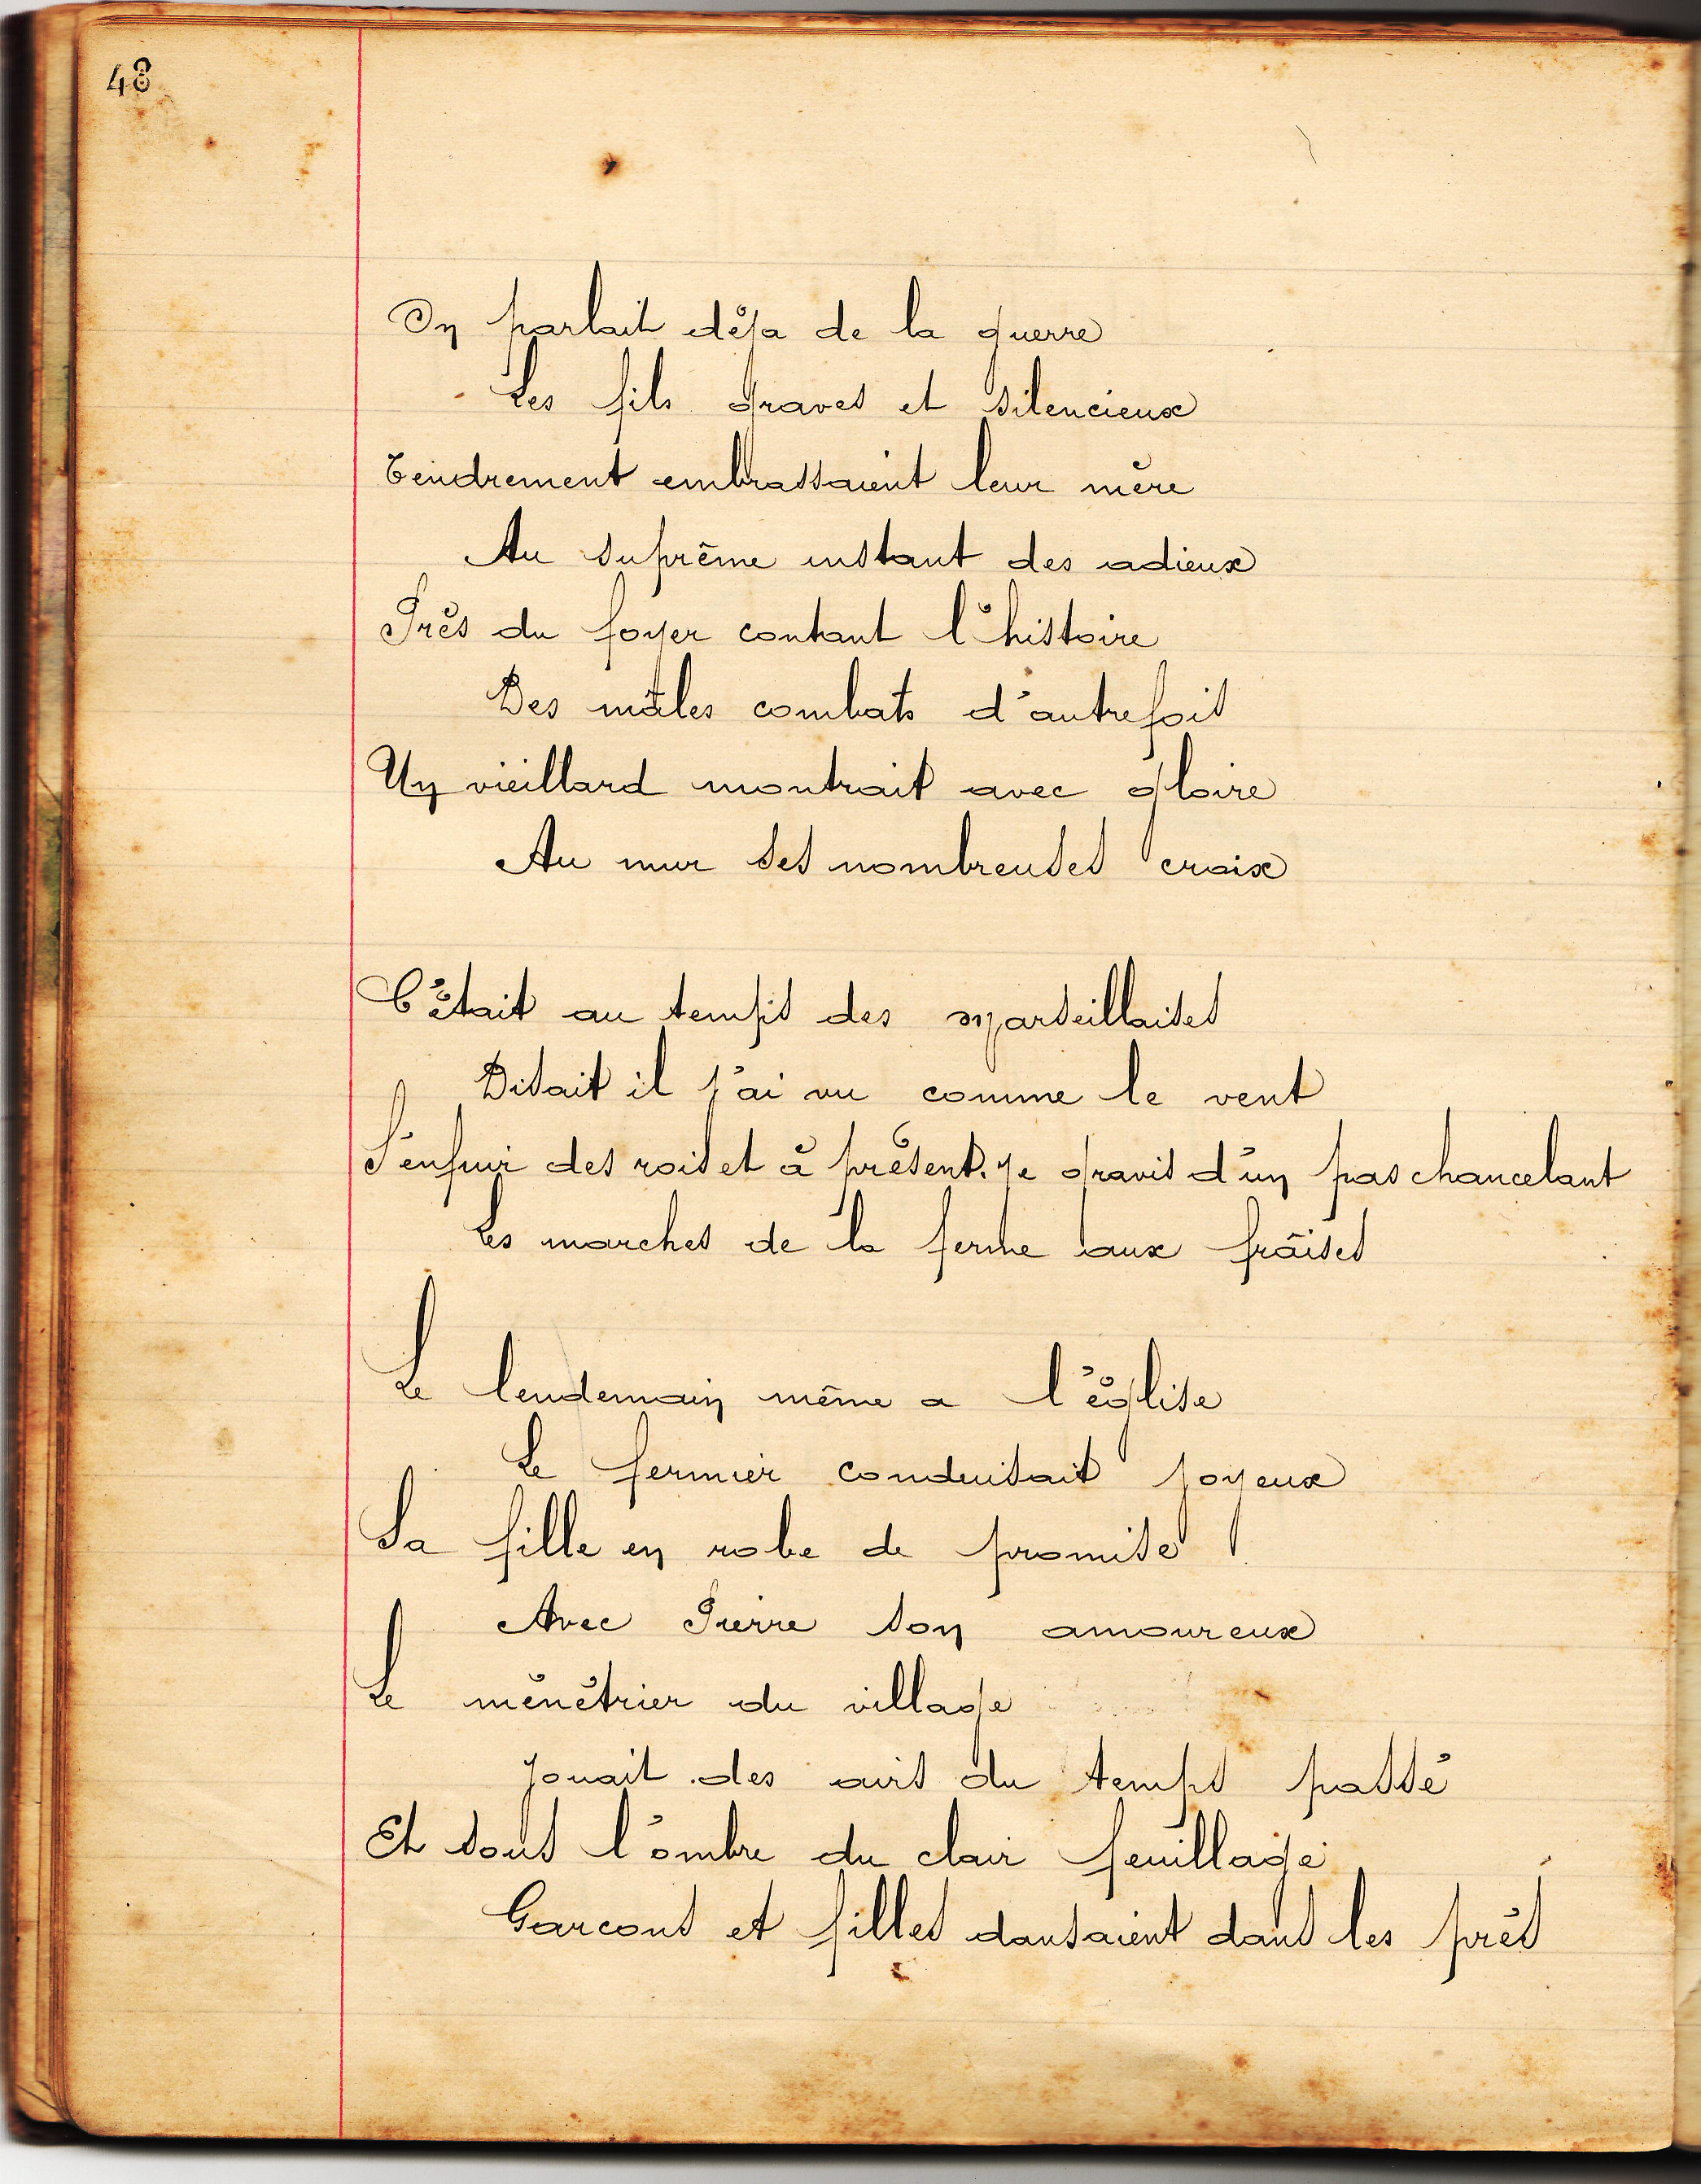 48
On parlait déja de la guerre
Les fils graves et silencieux
Tendrement embrassaient leur mère
Au suprême instant des adieux
Près du foyer contant l'histoire
Des mâles combats d'autrefois
Un vieillard montrait avec gloire
Au mur ses nombreuses croix
C'était au temps des marseillaises
Disait il j'ai vu comme le vent
S'enfuir des rois et à présent. Je gravis d'un pas chancelant
Les marches de la ferme aux fraises
Le lendemain même a l'église
Le fermier conduisait joyeux
Sa fille en robe de promise
Avec Pierre son amoureux
Le ménétrier du village
Jouait des airs du temps passé
Et sous l'ombre du clair feuillage
Garcons et filles dansaient dans les prés